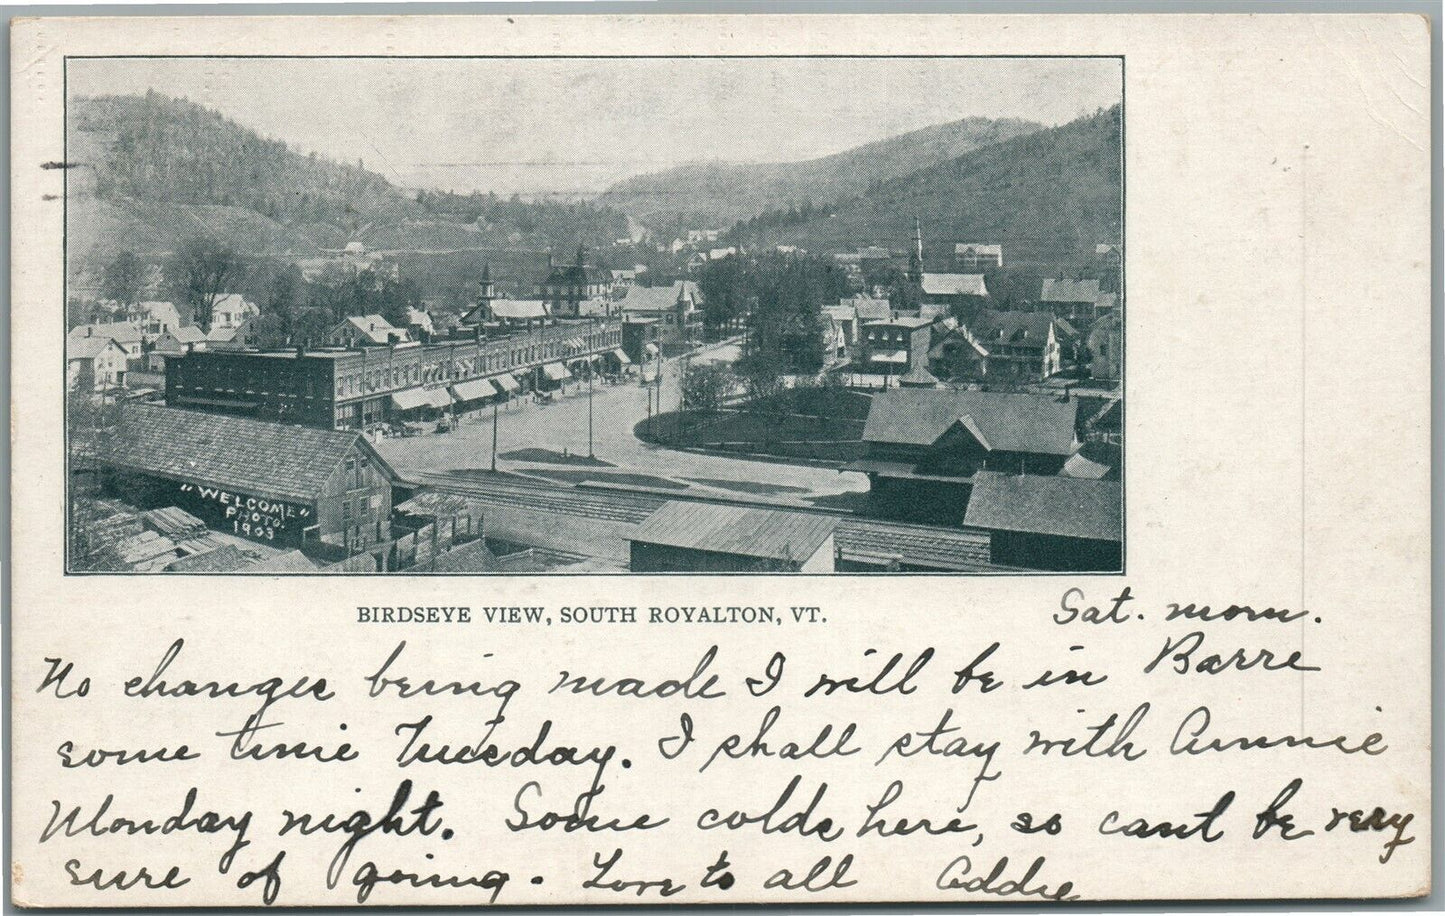 "WELCOME"
PHOTO.
1903
BIRDSEYE VIEW, SOUTH ROYALTON, VT.
Sat. morn.
No changes being made I will be in Barre
some time Tuesday. I shall stay with Annie
Monday night. Some colds here, so cant be very
sure of going. Love to all Addie